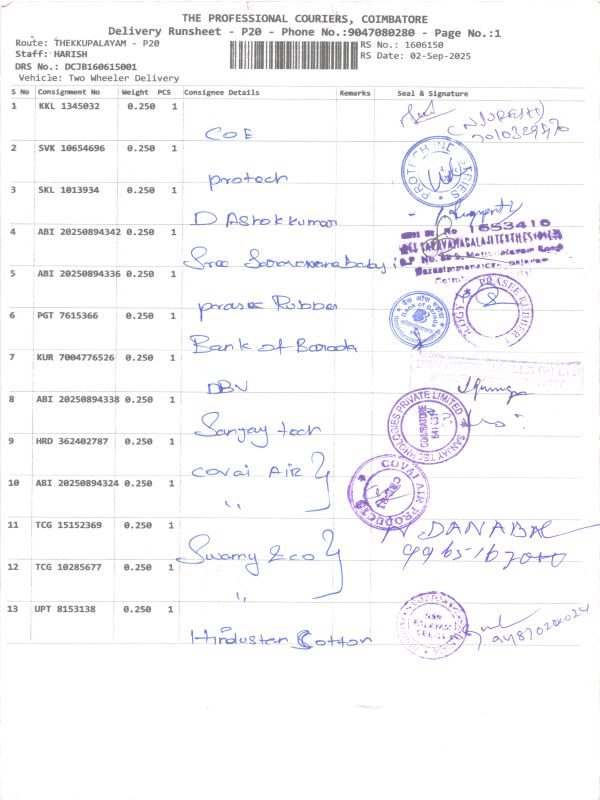 THE PROFESSIONAL COURIERS, COIMBATORE
Delivery Runsheet - P20 - Phone No.:9047080280 - Page No.:1
Route: THEKKUPALAYAM - P20
RS No.: 1606150
Staff: HARISH
RS Date: 02-Sep-2025
DRS No.: DCJB160615001
Vehicle: Two Wheeler Delivery
S No Consignment No Weight PCS Consignee Details Remarks Seal & Signature
1 KKL 1345032 0.250 1 COE
2 SVK 10654696 0.250 1 protech
3 SKL 1013934 0.250 1 D Ashokkumar
4 ABI 20250894342 0.250 1 Sree
5 ABI 20250894336 0.250 1 prasee Rubber
6 PGT 7615366 0.250 1 Bank of Baroda
7 KUR 7004776526 0.250 1 DBV
8 ABI 20250894338 0.250 1 Sanjay tech
SANJAY TECHNOLOGIES PRIVATE LIMITED
9 HRD 362402787 0.250 1 COVAI AIR
10 ABI 20250894324 0.250 1 "
COVAI AIR PRODUCTS
11 TCG 15152369 0.250 1 Swamy & co
12 TCG 10285677 0.250 1 "
13 UPT 8153138 0.250 1 Hindustan Cotton